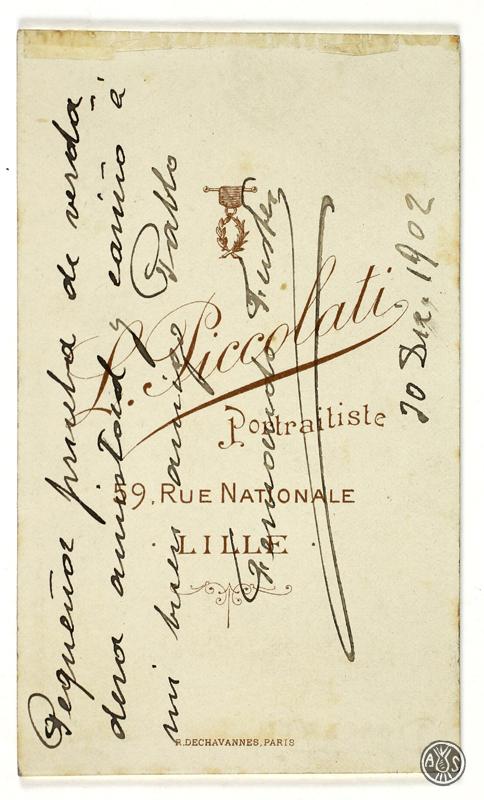 Pequeña prueba de verda-
dera amistad y cariño á
mi buen amigo Pablo
Fernando Fuster
20 Dic. 1902
L. Piccolati
Portraitiste
59, RUE NATIONALE
LILLE
R. DECHAVANNES, PARIS